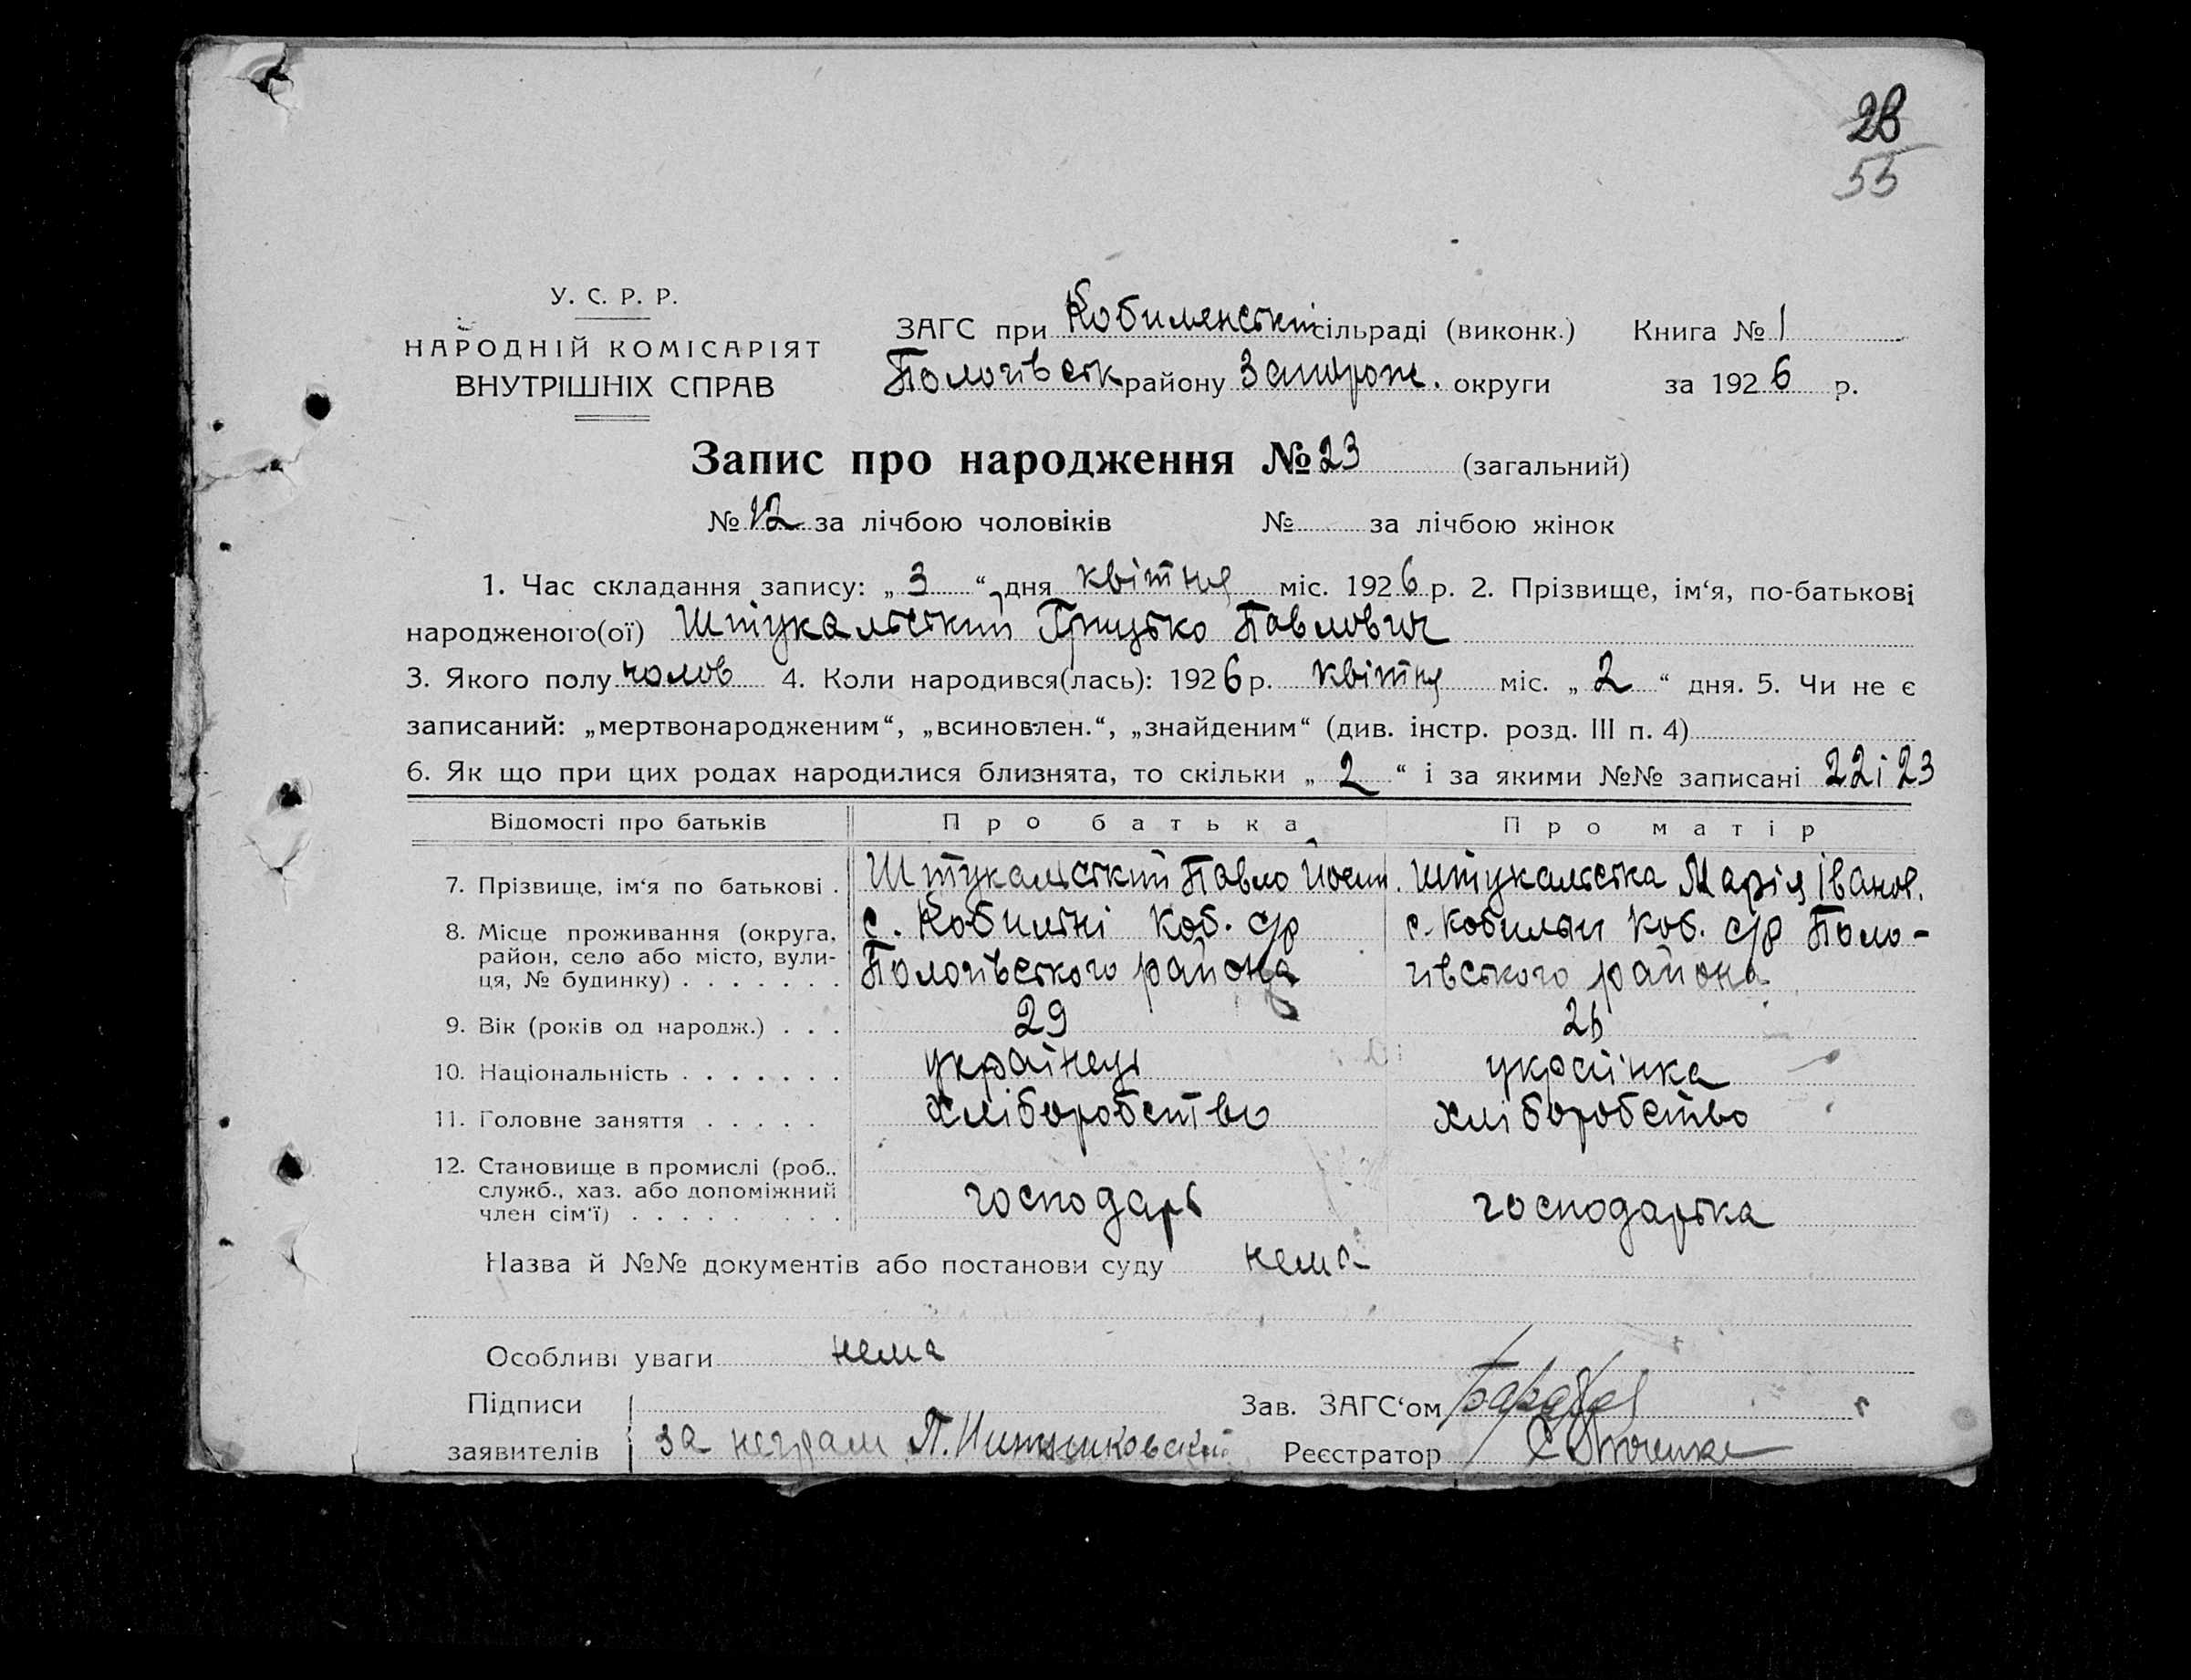 28
55
У. С. Р. Р.
НАРОДНІЙ КОМІСАРІЯТ
ВНУТРІШНІХ СПРАВ
ЗАГС при Кобилянській сільраді (виконк.) Книга № 1
Пологівськ району Запорож. округи за 1926 р.
Запис про народження № 23 (загальний)
№ 12 за лічбою чоловіків № за лічбою жінок
1. Час складання запису: „ 3 “ дня квітня міс. 1926 р. 2. Прізвище, ім‘я, по-батькові
народженого(ої) Штукальський Грицько Павлович
3. Якого полу чолов 4. Коли народився(лась): 1926 р. квітня міс. „ 2 “ дня. 5. Чи не є
записаний: „мертвонародженим“, „всиновлен.“, „знайденим“ (див. інстр. розд. III п. 4)
6. Як що при цих родах народилися близнята, то скільки „ 2 “ і за якими №№ записані 22 і 23
Відомості про батьків Про батька Про матір
7. Прізвище, ім‘я по батькові . Штукальський Павло Йосип. Штукальська Марія Іванов.
8. Місце проживання (округа, с. Кобильні Коб. с/р с. Кобиляни Коб. с/р Поло-
район, село або місто, вули- Пологівського района гівського района
ця, № будинку) . . . . . . .
9. Вік (років од народж.) . . . 29 26
10. Національність . . . . . . . українець українка
11. Головне заняття . . . . . хліборобство хліборобство
12. Становище в промислі (роб.,
служб., хаз. або допоміжний господарь господарька
член сім‘ї) . . . . . . . . .
Назва й №№ документів або постанови суду нема
Особливі уваги нема
Підписи Зав. ЗАГС‘ом
заявителів за неграм П. Реєстратор